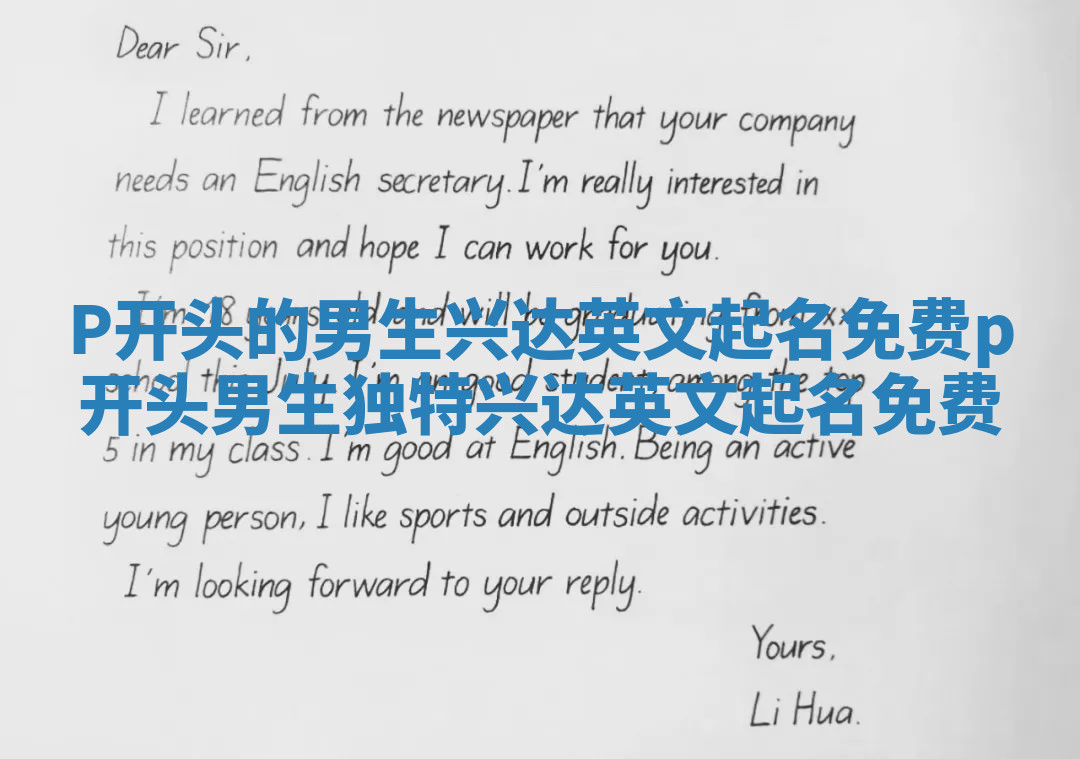 Dear Sir,
I learned from the newspaper that your company
needs an English secretary. I'm really interested in
this position and hope I can work for you.
I'm 18 years old and will be graduating from xx
P开头的男生兴达英文起名免费p
school this July. I'm an good student among the top
开头男生独特兴达英文起名免费
5 in my class. I'm good at English. Being an active
young person, I like sports and outside activities.
I'm looking forward to your reply.
Yours,
Li Hua.